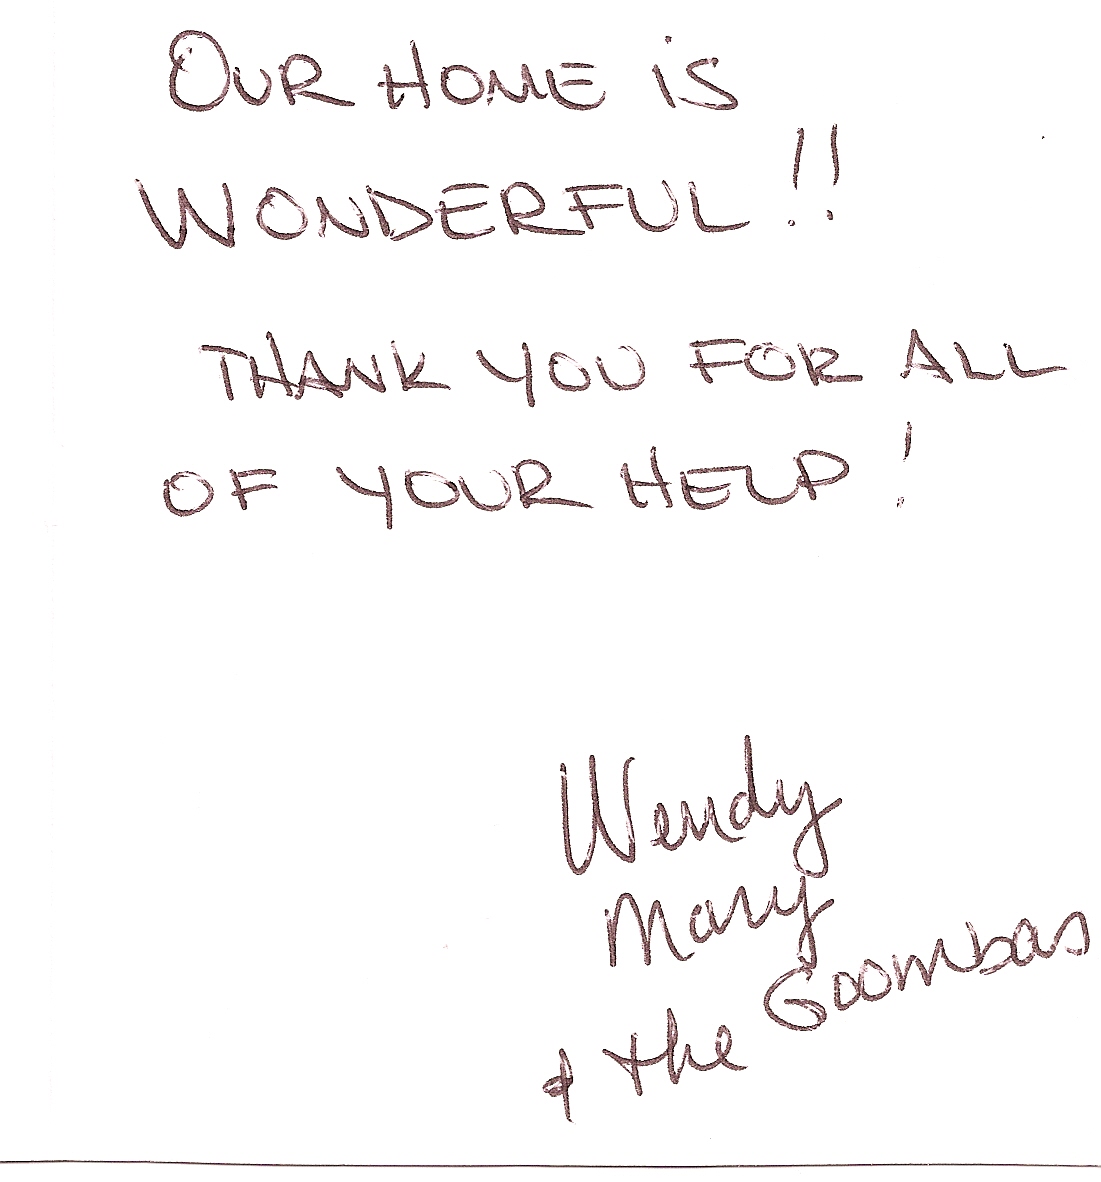 OUR HOME IS
WONDERFUL!!
THANK YOU FOR ALL
OF YOUR HELP!
Wendy
Mary
& the Goombas